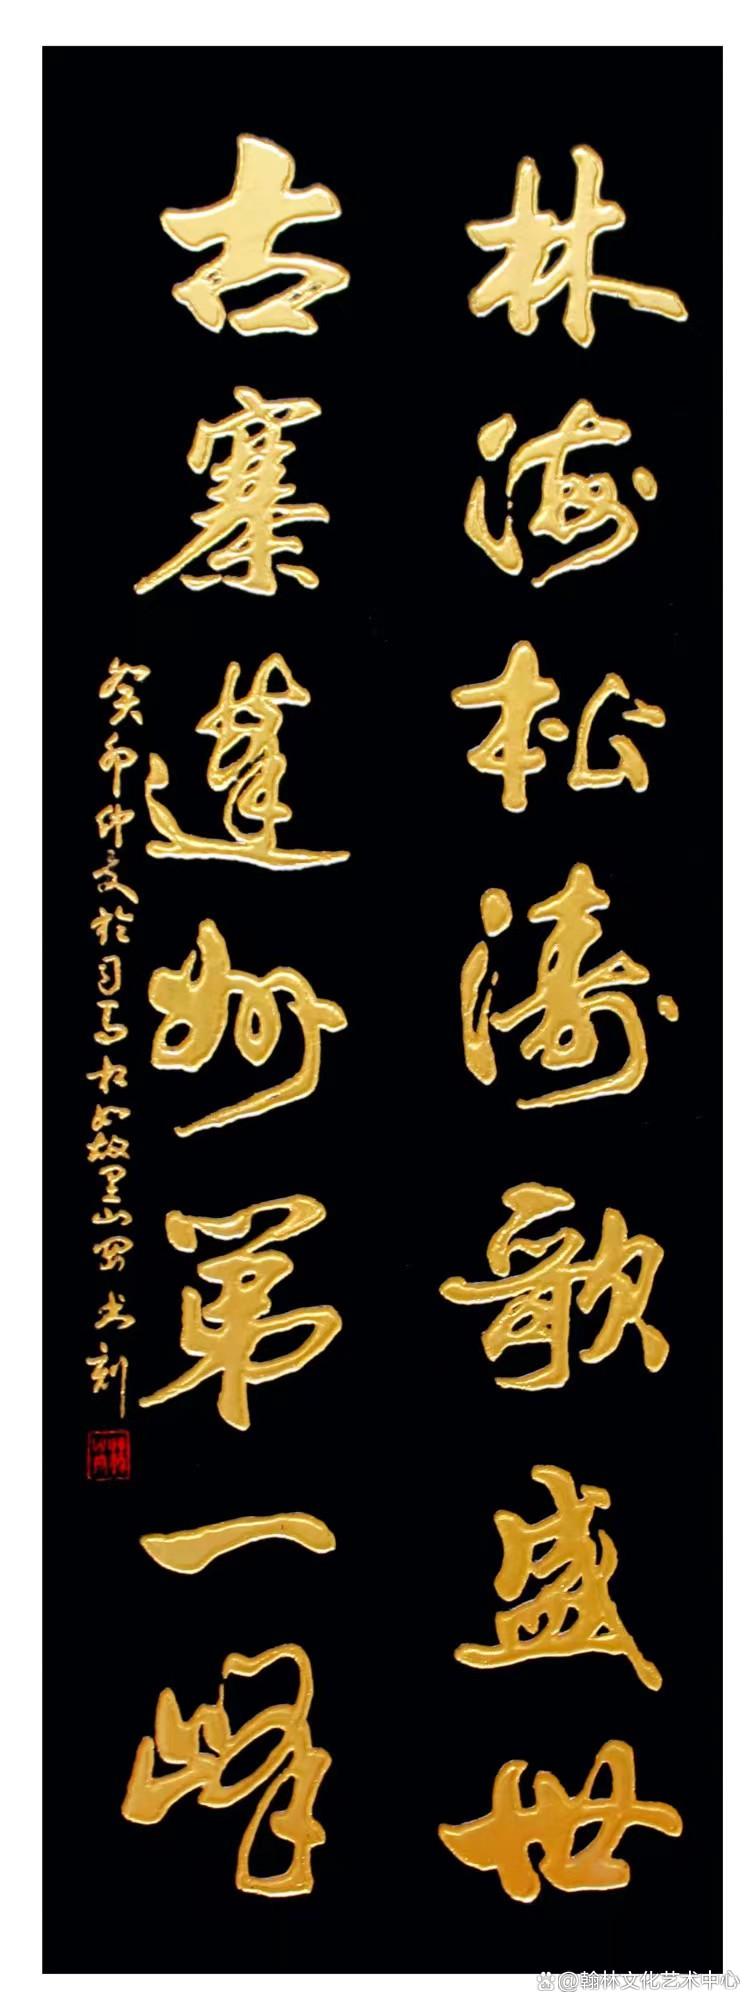 林海松涛歌盛世
古寨蓬州第一峰
癸卯仲夏於司马相如故里山哥书刻
@翰林文化艺术中心